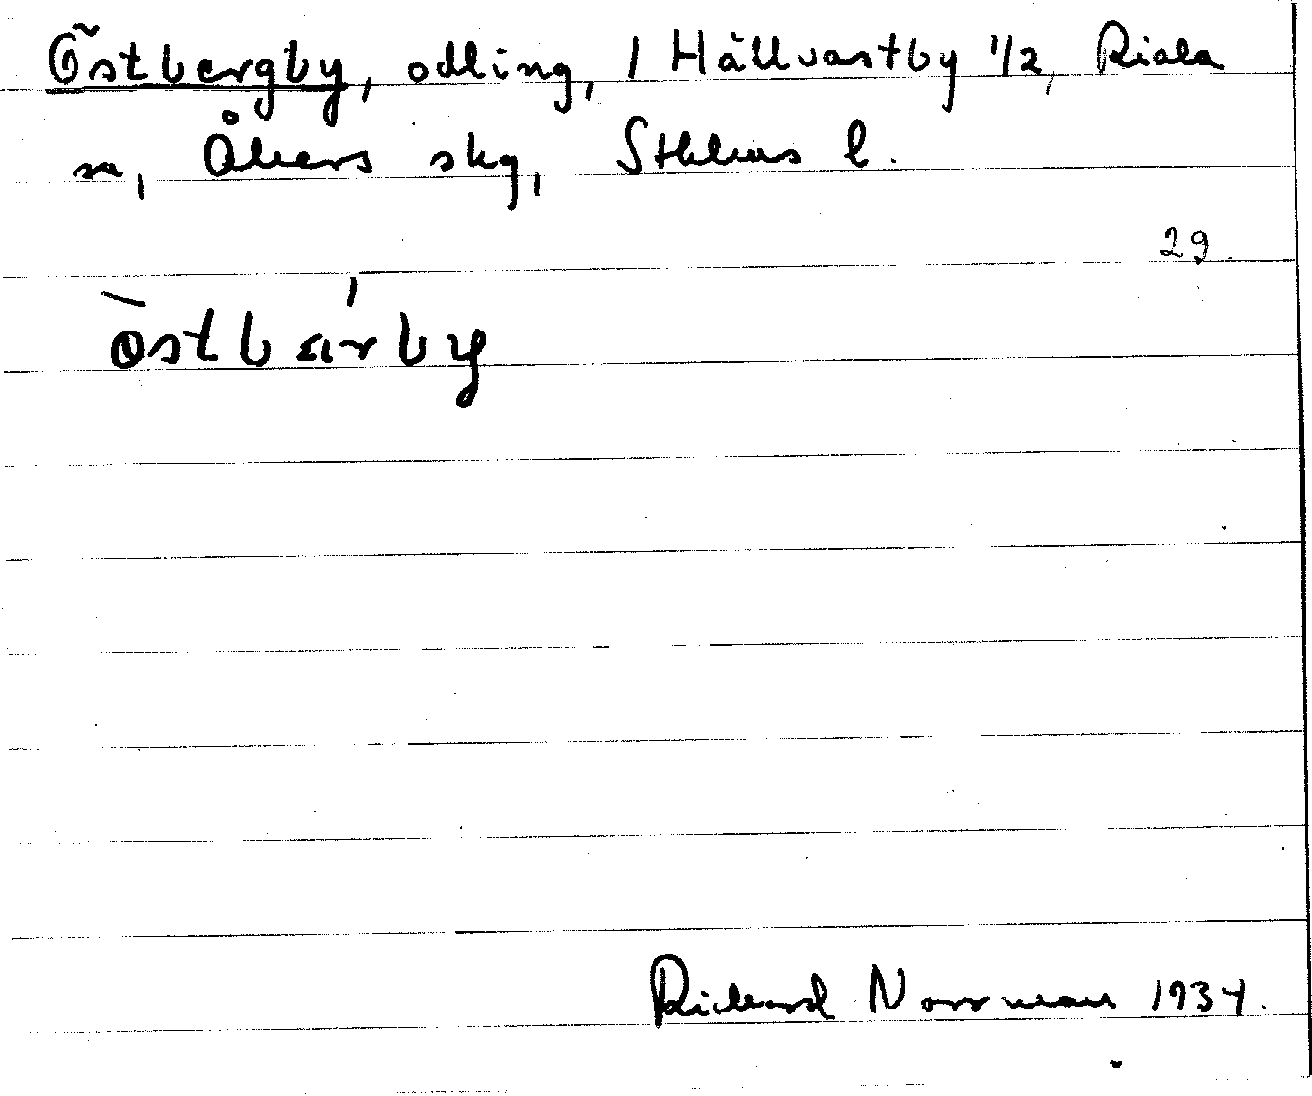 Östbergby, odling, 1 Hällvastby 1/2, Riala
sn, Åkers skg, Sthlms l.
29
östbärby
Richard Norrman 1934.